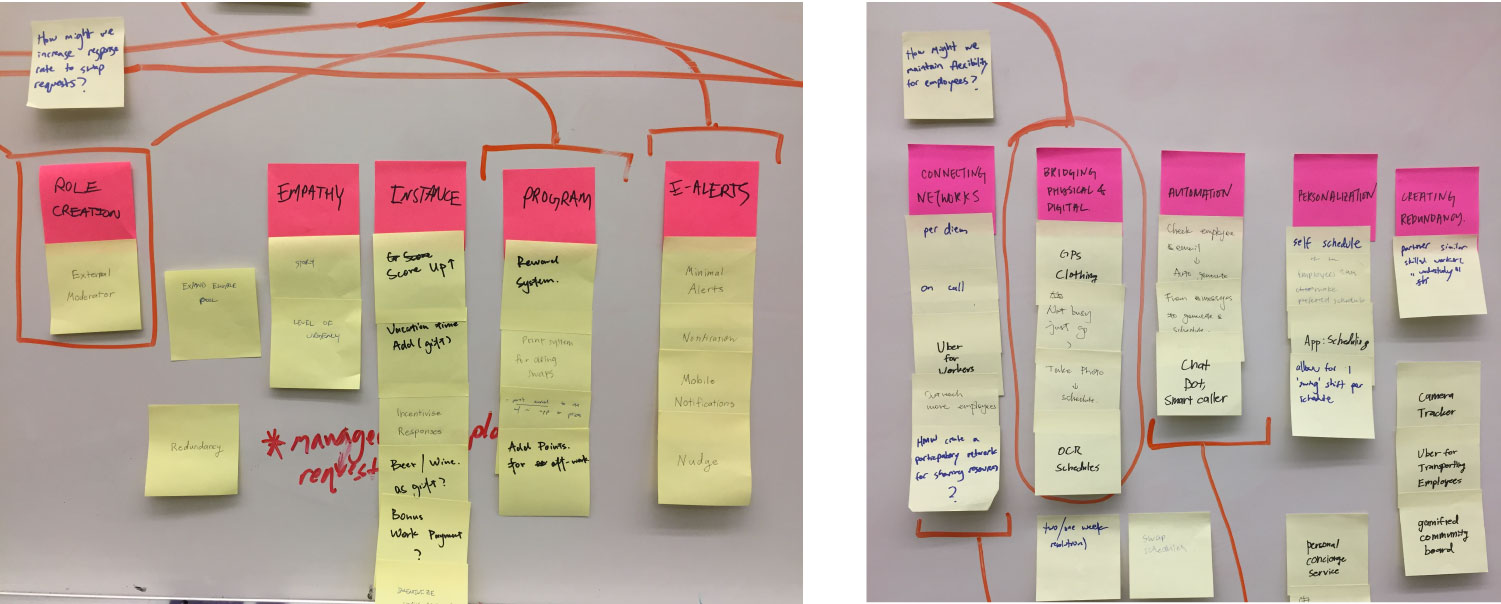 How might we
increase response
rate to swap
requests?
ROLE
CREATION
External
Moderator
EXPAND
POOL
Redundancy
* manage
request
EMPATHY
STORY
LEVEL OF
URGENCY
INSTANCE
Score Up↑
Vacation time
Add (gift)
Incentivise
Responses
Beer / Wine.
as gift?
Bonus
Work Payment
?
PROGRAM
Reward
System.
Print system
for asking
swaps
Add Points.
for off-work
E-ALERTS
Minimal
Alerts
Notification
Mobile
Notifications
Nudge
How might we
maintain flexibility
for employees?
CONNECTING
NETWORKS
per diem
on call
Uber
for
Workers
Outreach
more employees
HMW create a
participatory network
for sharing resources
?
BRIDGING
PHYSICAL &
DIGITAL
GPS
Clothing
Not busy
just go
Take Photo
↓
schedule.
OCR
Schedules
two/one week
swap
AUTOMATION
Check employee
& email
↓
Auto generate
From messages
to generate &
schedule
Chat
Bot,
Smart caller
PERSONALIZATION
self schedule
Employees can
preferred schedule
App: Scheduling
allow for 1
"swing" shift per
schedule
personal
concierge
service
CREATING
REDUNDANCY.
partner similar
skilled workers
Camera
Tracker
Uber for
Transporting
Employees
gamified
community
board